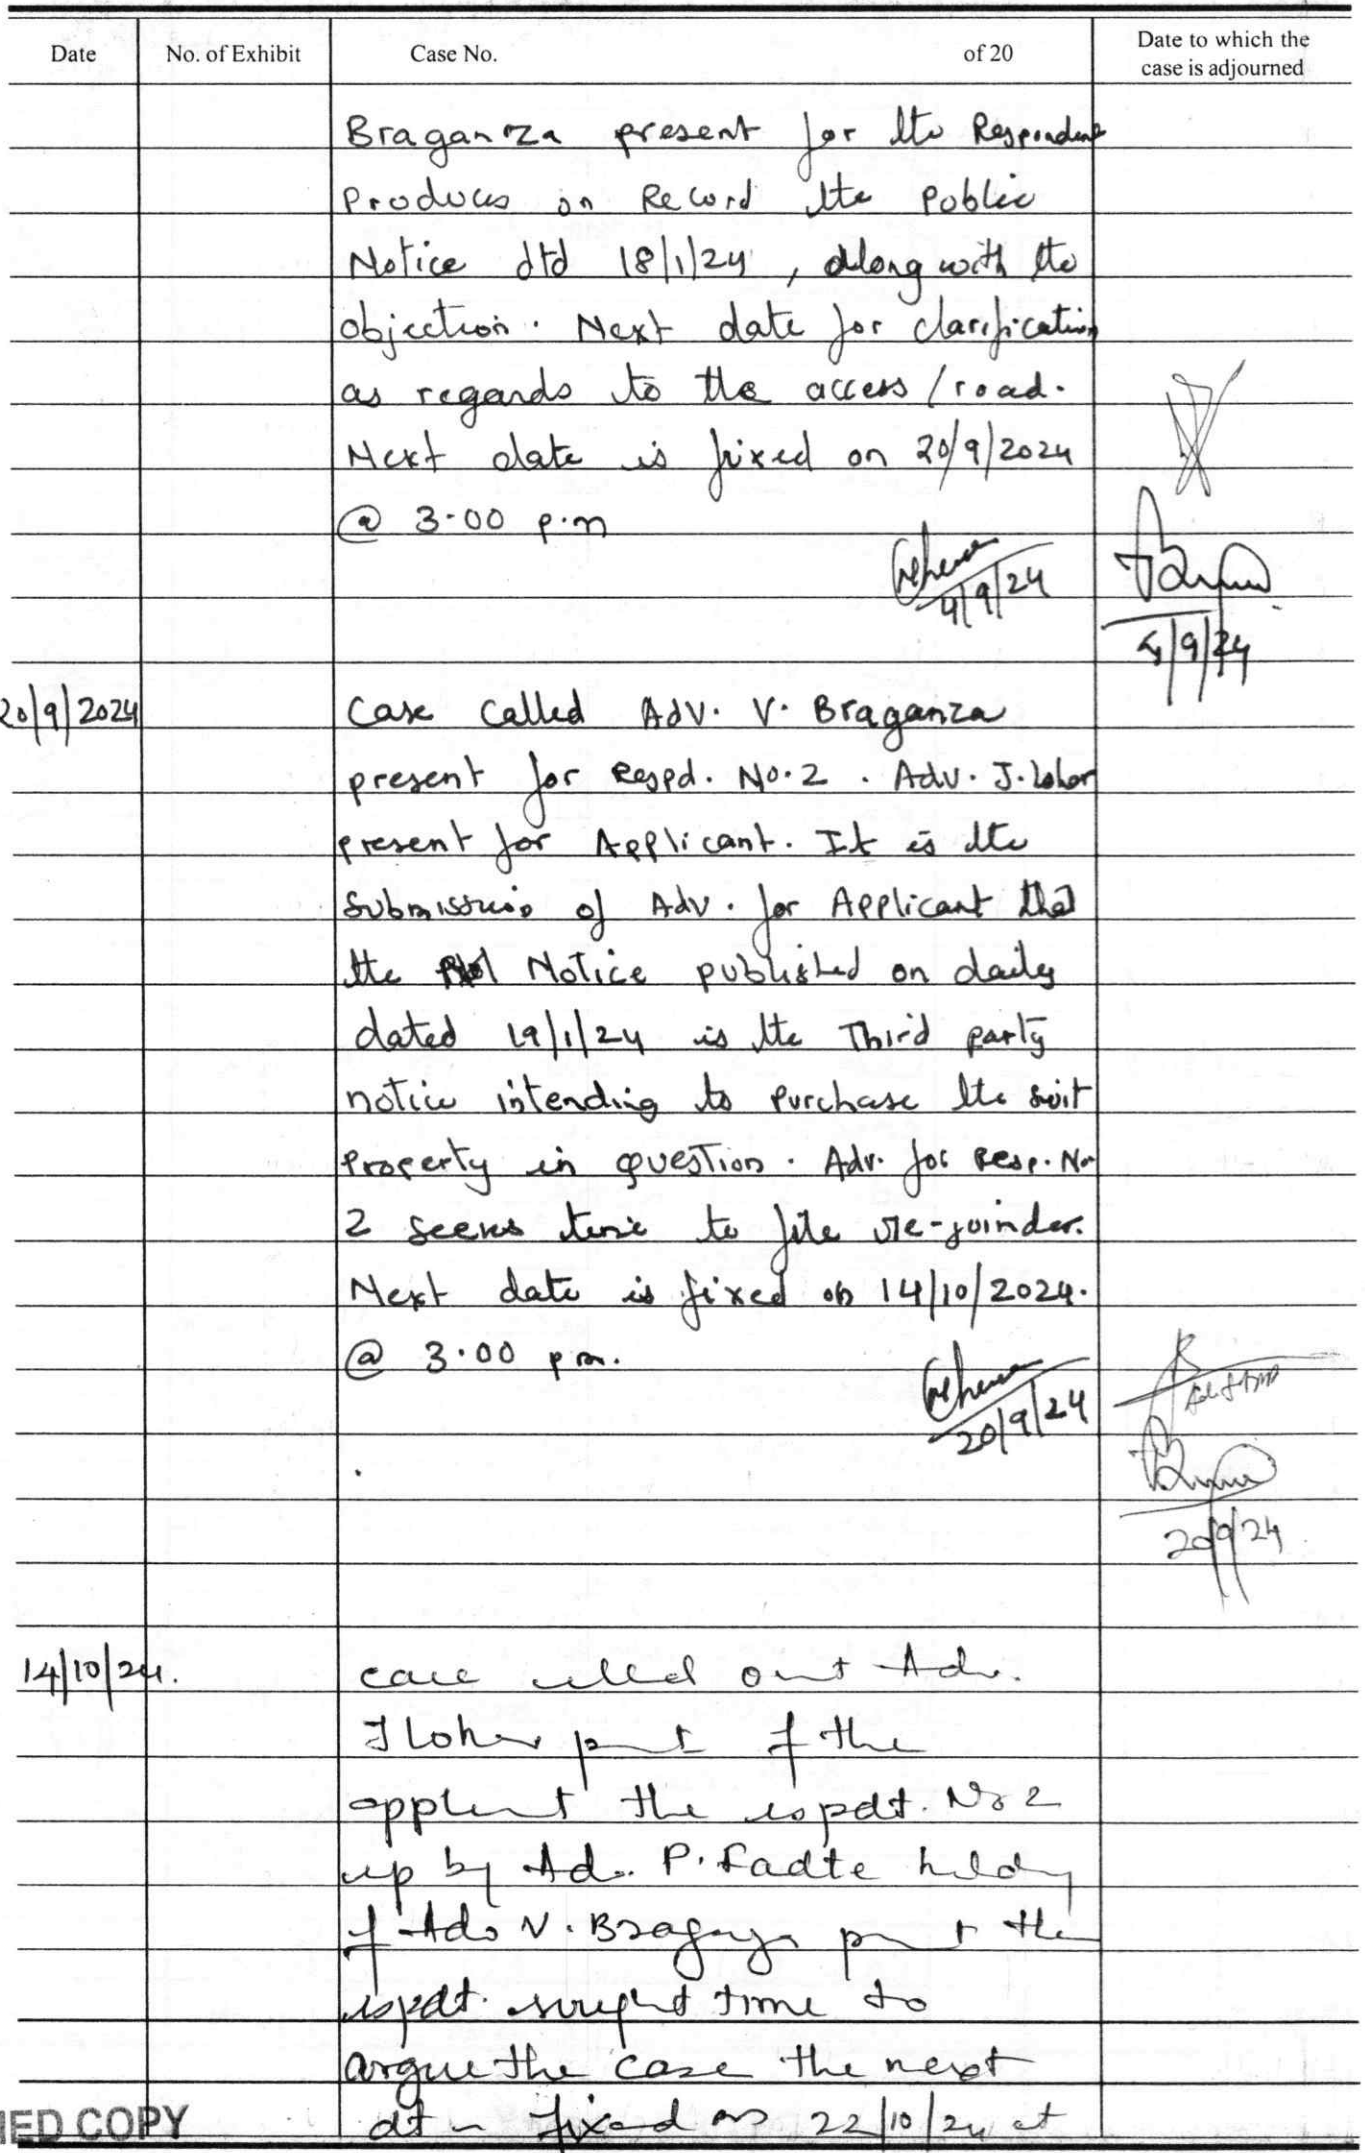 Date No. of Exhibit Case No. of 20 Date to which the
case is adjourned
Braganza present for the Respondent
Produces on Record the Public
Notice dtd 18/1/24, along with the
objection. Next date for clarification
as regards to the access/road.
Next date is fixed on 20/9/2024
@ 3.00 p.m
4/9/24
4/9/24
20/9/2024 Case called Adv. V. Braganza
present for Respd. No.2. Adv. J. Loher
present for Applicant. It is the
submission of Adv. for Applicant that
the Notice published on daily
dated 19/1/24 is the Third party
notice intending to purchase the suit
property in question. Adv. for Resp. No
2 seeks time to file re-joinder.
Next date is fixed on 14/10/2024.
@ 3.00 pm.
20/9/24
20/9/24
14/10/24. case called out Adv.
J Loher of the
the respdt. No 2
up by Adv. P. Fadte
V. the
respdt. sought time to
argue the case the next
dt fixed on 22/10/24 at
IED COPY